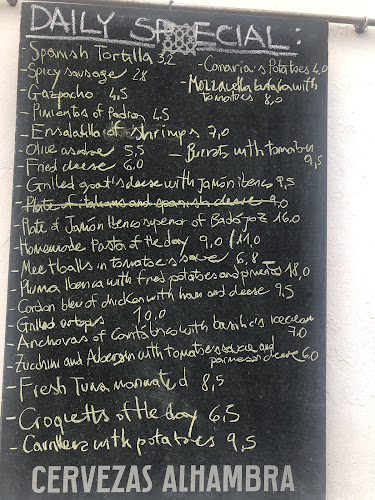 DAILY SPECIAL:
- Spanish Tortilla 3,2
- Canaria's Potatoes 4,0
- Spicy sausage 2,8
- Mozzarella bufala with tomatoes 8,0
- Gazpacho 4,5
- Pimientos of Padron 4,5
- Ensaladilla of shrimps 7,0
- Olive 5,5
- Burrata with tomatoes 9,5
- Fried cheese 6,0
- Grilled goat's cheese with Jamón iberico 9,5
- Plate of italians and spanish cheese 9,0
- Plate of Jamón Iberico superior of Badajoz 16,0
- Homemade Pasta of the day 9,0 / 11,0
- Meetballs in tomatoe's sauce 6,8
- Pluma Iberica with fried potatoes and pimientos 18,0
- Cordon bleu of chicken with ham and cheese 9,5
- Grilled octopus 10,0
- Anchovas of Cantabrico with basilic's icecream 7,0
- Zucchini and Aubergin with tomatoe's sauce and parmesan cheese 6,0
- Fresh Tuna marinated 8,5
- Croquetts of the day 6,5
- Carrillera with potatoes 9,5
CERVEZAS ALHAMBRA